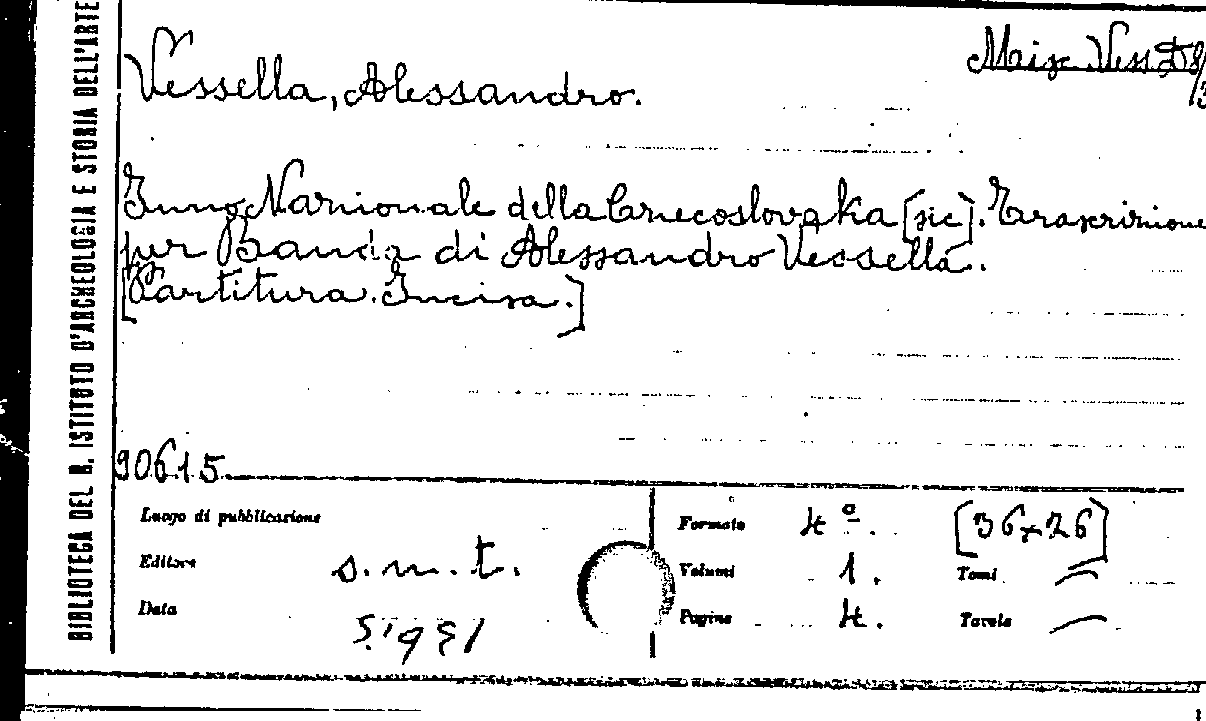 BIBLIOTECA DEL R. ISTITUTO D'ARCHEOLOGIA E STORIA DELL'ARTE
Vessella, Alessandro.
Inno Nazionale della Czecoslovaka [sic]. Trascrizione
per Banda di Alessandro Vessella.
[Partitura. Incisa.]
90615
Luogo di pubblicazione
Formato 4º. [36×26]
Editore s.n.t.
Volumi 1. Tomi —
Data
Pagine 4. Tavole —